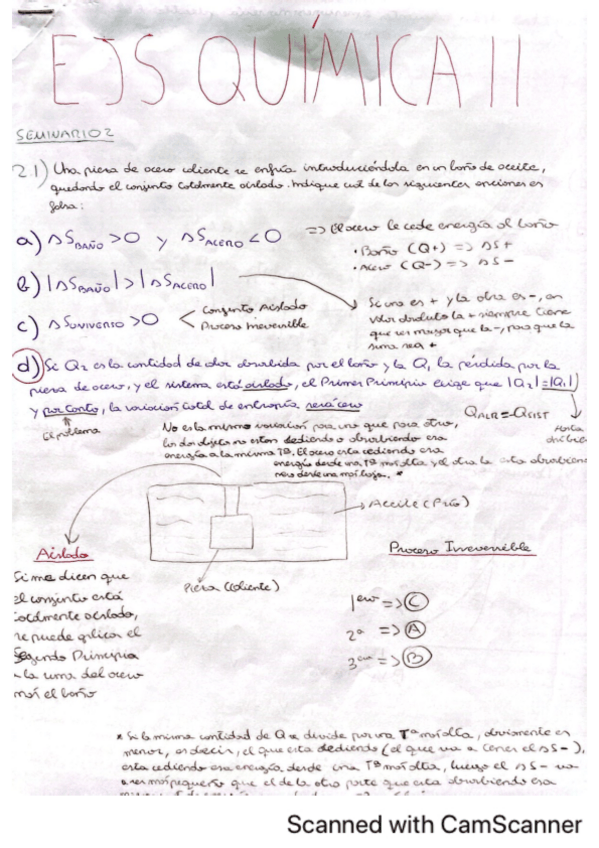 EJS QUÍMICA II
SEMINARIO 2
2.1) Una pieza de acero caliente se enfría introduciéndola en un baño de aceite,
quedando el conjunto totalmente aislado. Indique cuál de las siguientes opciones es
falsa:
a) ΔS BAÑO > 0 y ΔS ACERO < 0
=> El acero le cede energía al baño
• Baño (Q+) => ΔS +
• Acero (Q-) => ΔS -
b) |ΔS BAÑO| > |ΔS ACERO|
Si una es + y la otra es -, en
valor absoluto la + siempre tiene
que ser mayor que la -, para que la
suma sea +
c) ΔS UNIVERSO > 0
Conjunto Aislado
Proceso Irreversible
d) Si Q2 es la cantidad de calor absorbida por el baño y la Q1 la pérdida por la
pieza de acero, y el sistema está aislado, el Primer Principio exige que |Q2| = |Q1|
y por tanto, la variación total de entropía será cero
El problema
QALR = -QSIST
No es la misma variación para uno que para otro,
los dos objetos no están cediendo o absorbiendo esa
energía a la misma Tª. El acero esta cediendo esa
energía desde una Tª más alta y el otro la esta absorbien
desde una más baja. *
Aceite (Frío)
Pieza (Caliente)
Aislado
Si me dicen que
el conjunto está
totalmente aislado,
se puede aplicar el
Segundo Principio
a la suma del acero
más el baño
Proceso Irreversible
1ero => C
2a => A
=> B
* Si la misma cantidad de Q se divide por una Tª más alta, obviamente es
menor, es decir, el que esta cediendo (el que va a tener el ΔS -),
esta cediendo esa energía desde una Tª más alta, luego el ΔS - va
a ser más pequeño que el de la otra parte que esta absorbiendo esa
Scanned with CamScanner